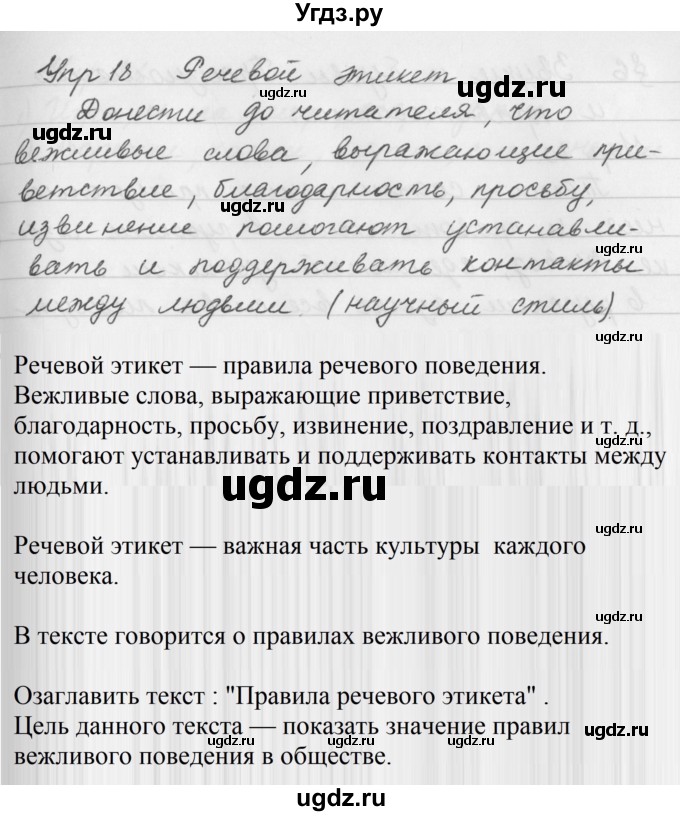 Угдз.ру
Упр 18 Речевой этикет
Донести до читателя, что
вежливые слова, выражающие при-
ветствие, благодарность, просьбу,
извинение помогают устанавли-
вать и поддерживать контакты
между людьми. (научный стиль)
Речевой этикет — правила речевого поведения.
Вежливые слова, выражающие приветствие,
благодарность, просьбу, извинение, поздравление и т. д.,
помогают устанавливать и поддерживать контакты между
людьми.
Речевой этикет — важная часть культуры каждого
человека.
В тексте говорится о правилах вежливого поведения.
Озаглавить текст : "Правила речевого этикета" .
Цель данного текста — показать значение правил
вежливого поведения в обществе.
ugdz.ru